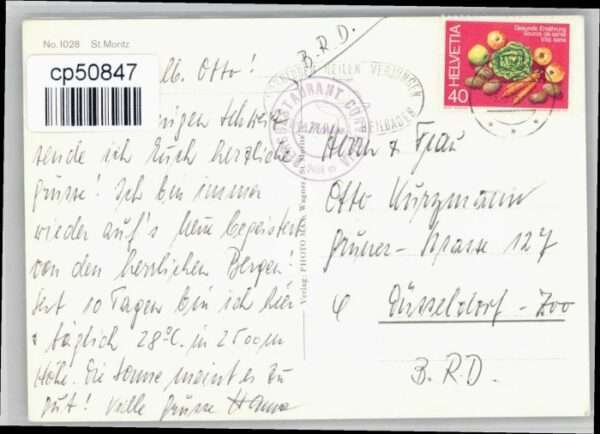 No. 1028 St. Moritz
B.R.D.
cp50847
Otto!
sende ich Euch herzliche
Grüsse! Ich bin immer
wieder auf's Neue begeistert
von den herrlichen Bergen!
Seit 10 Tagen bin ich hier
+ täglich 28°C. in 2500 m
Höhe. Die Sonne meint es zu
gut! Viele Grüsse Hanna
Verlag: PHOTO Wagner, St. Moritz
HEILEN VERJÜNGEN
HEILBADES
RESTAURANT
HELVETIA
40
Gesunde Ernährung
Source de santé
Vita sana
Herrn + Frau
Otto Kurzmann
Gruner-Strasse 127
4 Düsseldorf-Zoo
B.R.D.